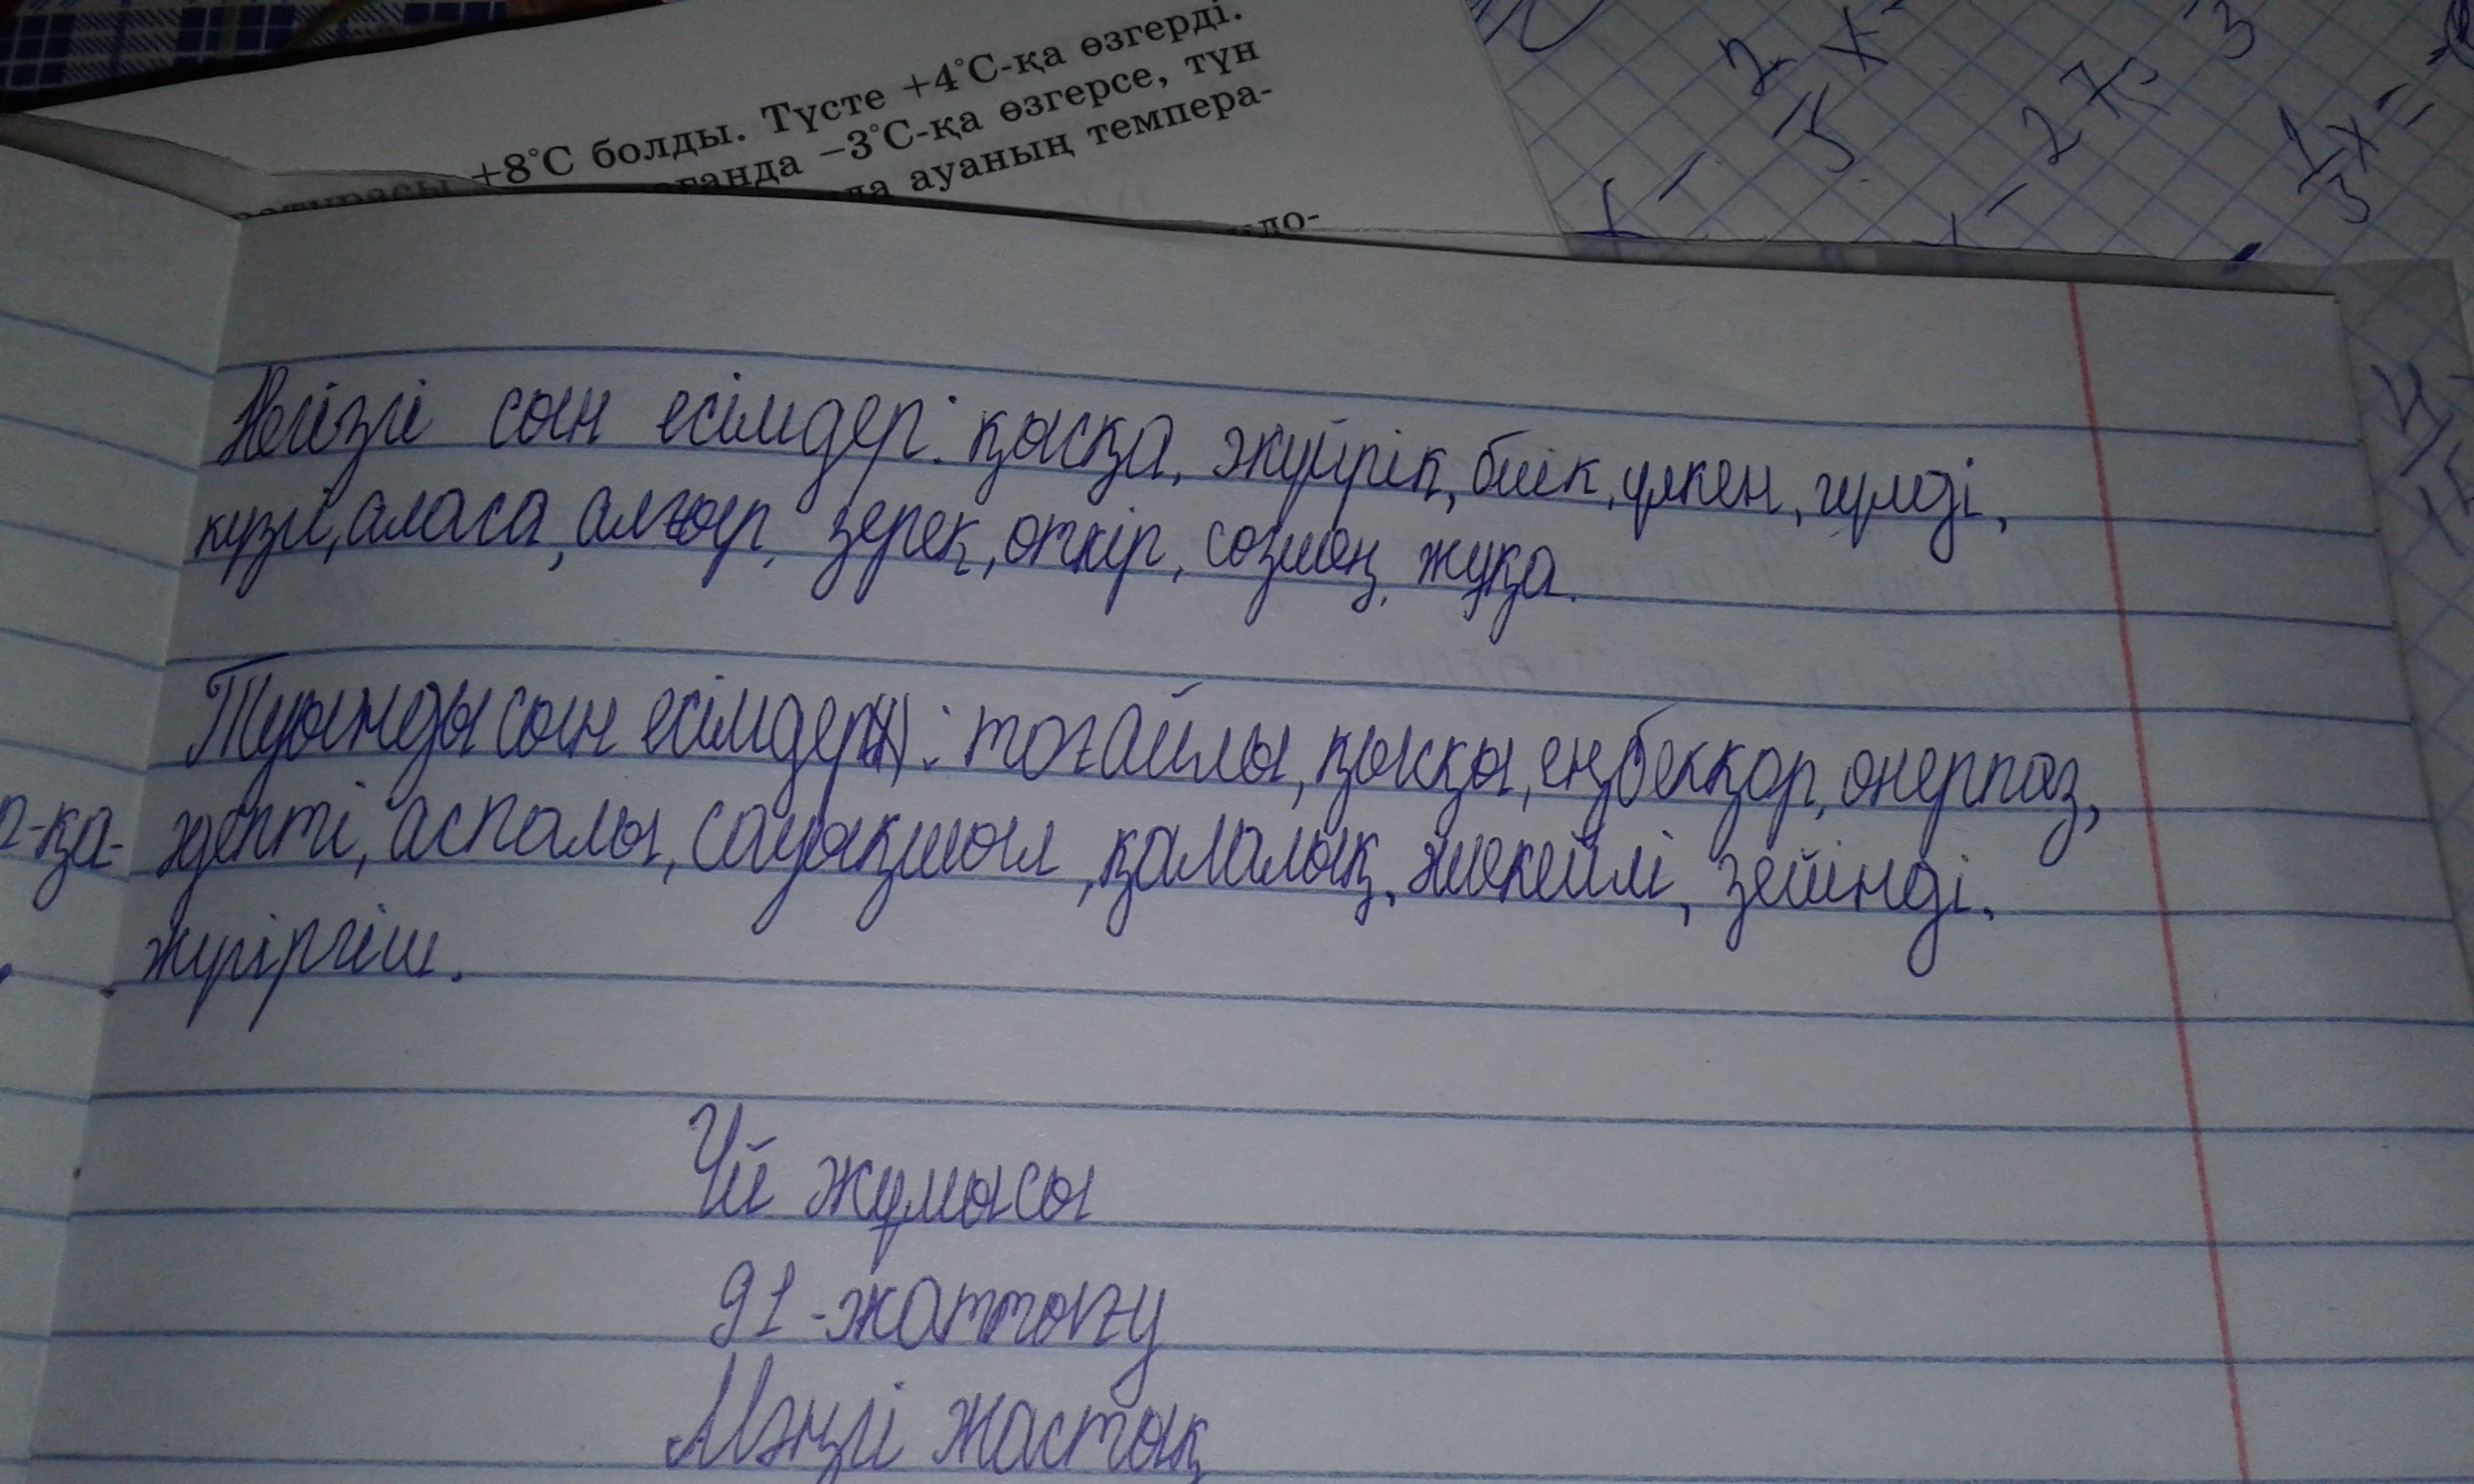 +8°С болды. Түсте +4°С-қа өзгерді.
–3°С-қа өзгерсе, түн
ауаның темпера-
Негізгі сын есімдер: қысқа, жүйрік, биік, үлкен, гүлді,
күзгі, аласа, алғыр, зерек, өткір, созылмаң, жұқа.
Туынды сын есімдер: тоғайлы, қысқы, еңбекқор, өнерпаз,
әдепті, аспалы, сауықшыл, қалалық, мекейлі, зейінді,
жүгіргіш.
Үй жұмысы
91-жаттығу
Мәңгі жастық